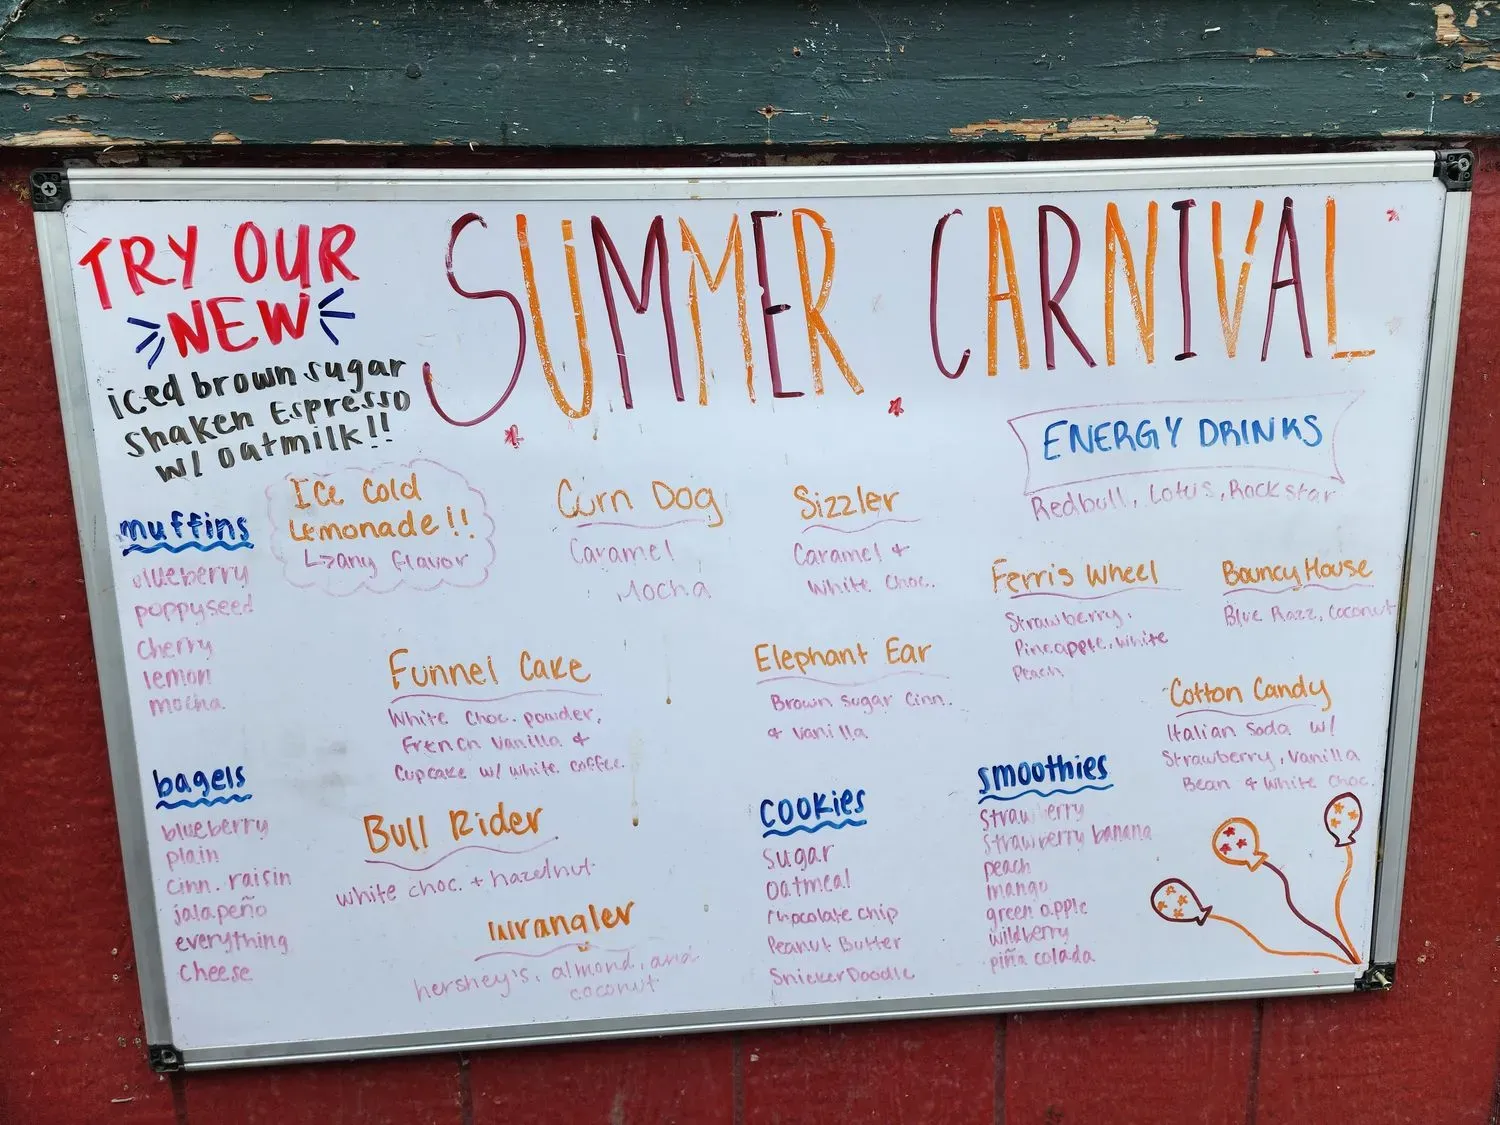 SUMMER CARNIVAL
TRY OUR
NEW
iced brown sugar
shaken Espresso
w/ oatmilk!!
Ice Cold
Lemonade!!
↳any flavor
muffins
blueberry
poppyseed
cherry
lemon
mocha
bagels
blueberry
plain
cinn. raisin
jalapeño
everything
cheese
Corn Dog
Caramel
Mocha
Sizzler
Caramel &
White Choc.
Funnel Cake
White Choc. powder,
French Vanilla &
Cupcake w/ white coffee.
Elephant Ear
Brown Sugar Cinn.
& Vanilla
Bull Rider
white choc. + hazelnut
Wrangler
hershey's, almond, and
coconut
COOKIES
sugar
oatmeal
Chocolate chip
Peanut Butter
SnickerDoodle
ENERGY DRINKS
Redbull, Lotus, Rockstar
Ferris Wheel
Strawberry,
Pineapple, White
Peach
Bouncy House
Blue Razz, Coconut
Cotton Candy
Italian Soda w/
Strawberry, Vanilla
Bean & White Choc.
smoothies
strawberry
strawberry banana
peach
mango
green apple
wildberry
piña colada